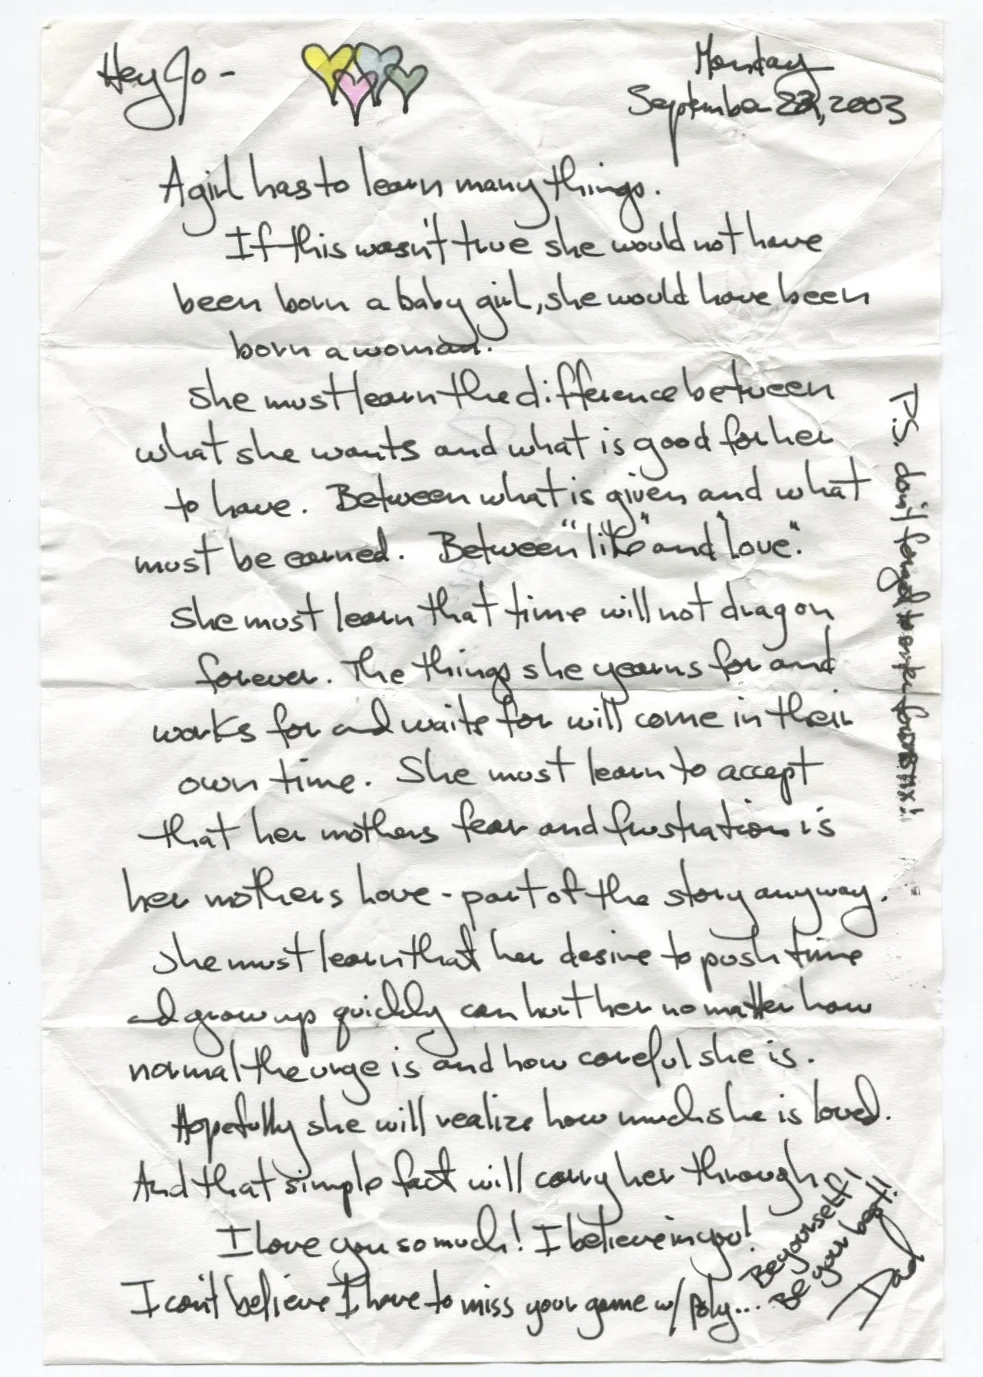 Hey Jo -
Monday
September 22, 2003
A girl has to learn many things.
If this wasn't true she would not have
been born a baby girl, she would have been
born a woman.
She must learn the difference between
what she wants and what is good for her
to have. Between what is given and what
must be earned. Between "like" and "love".
She must learn that time will not drag on
forever. The things she yearns for and
works for and waits for will come in their
own time. She must learn to accept
that her mothers fear and frustration is
her mothers love - part of the story anyway.
She must learn that her desire to push time
and grow up quickly can hurt her no matter how
normal the urge is and how careful she is.
Hopefully she will realize how much she is loved.
And that simple fact will carry her through.
I love you so much! I believe in you!
I can't believe I have to miss your game w/ Poly...
Be yourself!
Be your best!!
Dad
P.S. don't forget to enter